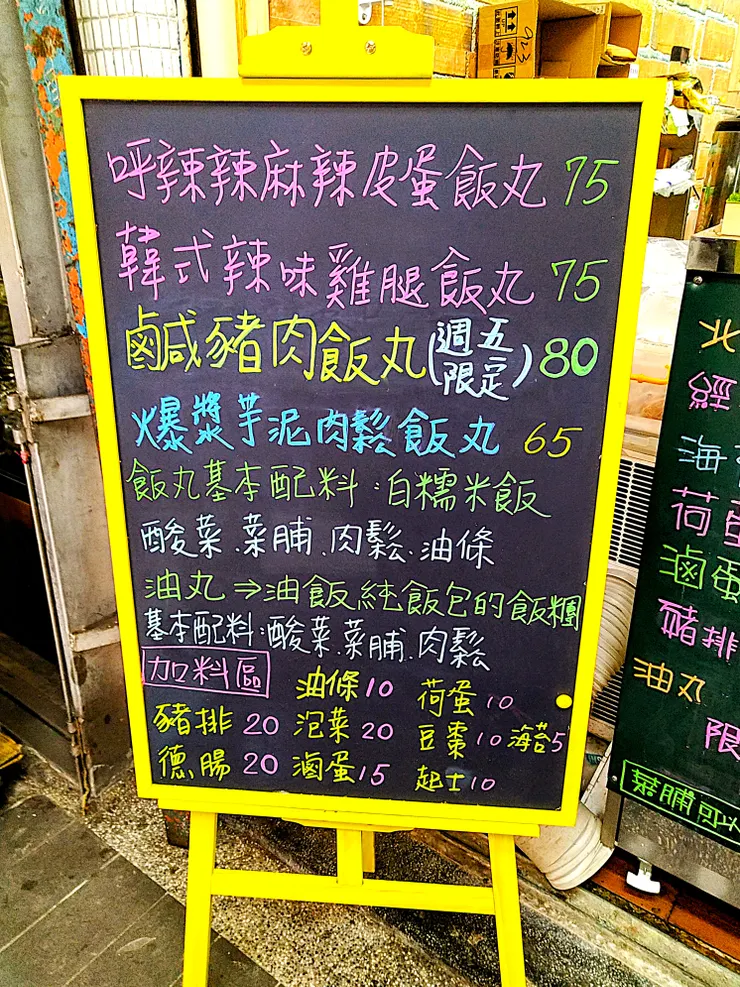 呼辣辣麻辣皮蛋飯丸 75
韓式辣味雞腿飯丸 75
鹹豬肉飯丸(週五限定) 80
爆漿芋泥肉鬆飯丸 65
飯丸基本配料:白糯米飯
酸菜、菜脯、肉鬆、油條
油丸⇒油飯純飯包的飯糰
基本配料:酸菜、菜脯、肉鬆
加料區
油條10 荷蛋10
豬排20 泡菜20 豆棗10 海苔5
德腸20 滷蛋15 起士10
北
經
海
荷蛋
滷蛋
豬排
油丸
限
菜脯可以
923